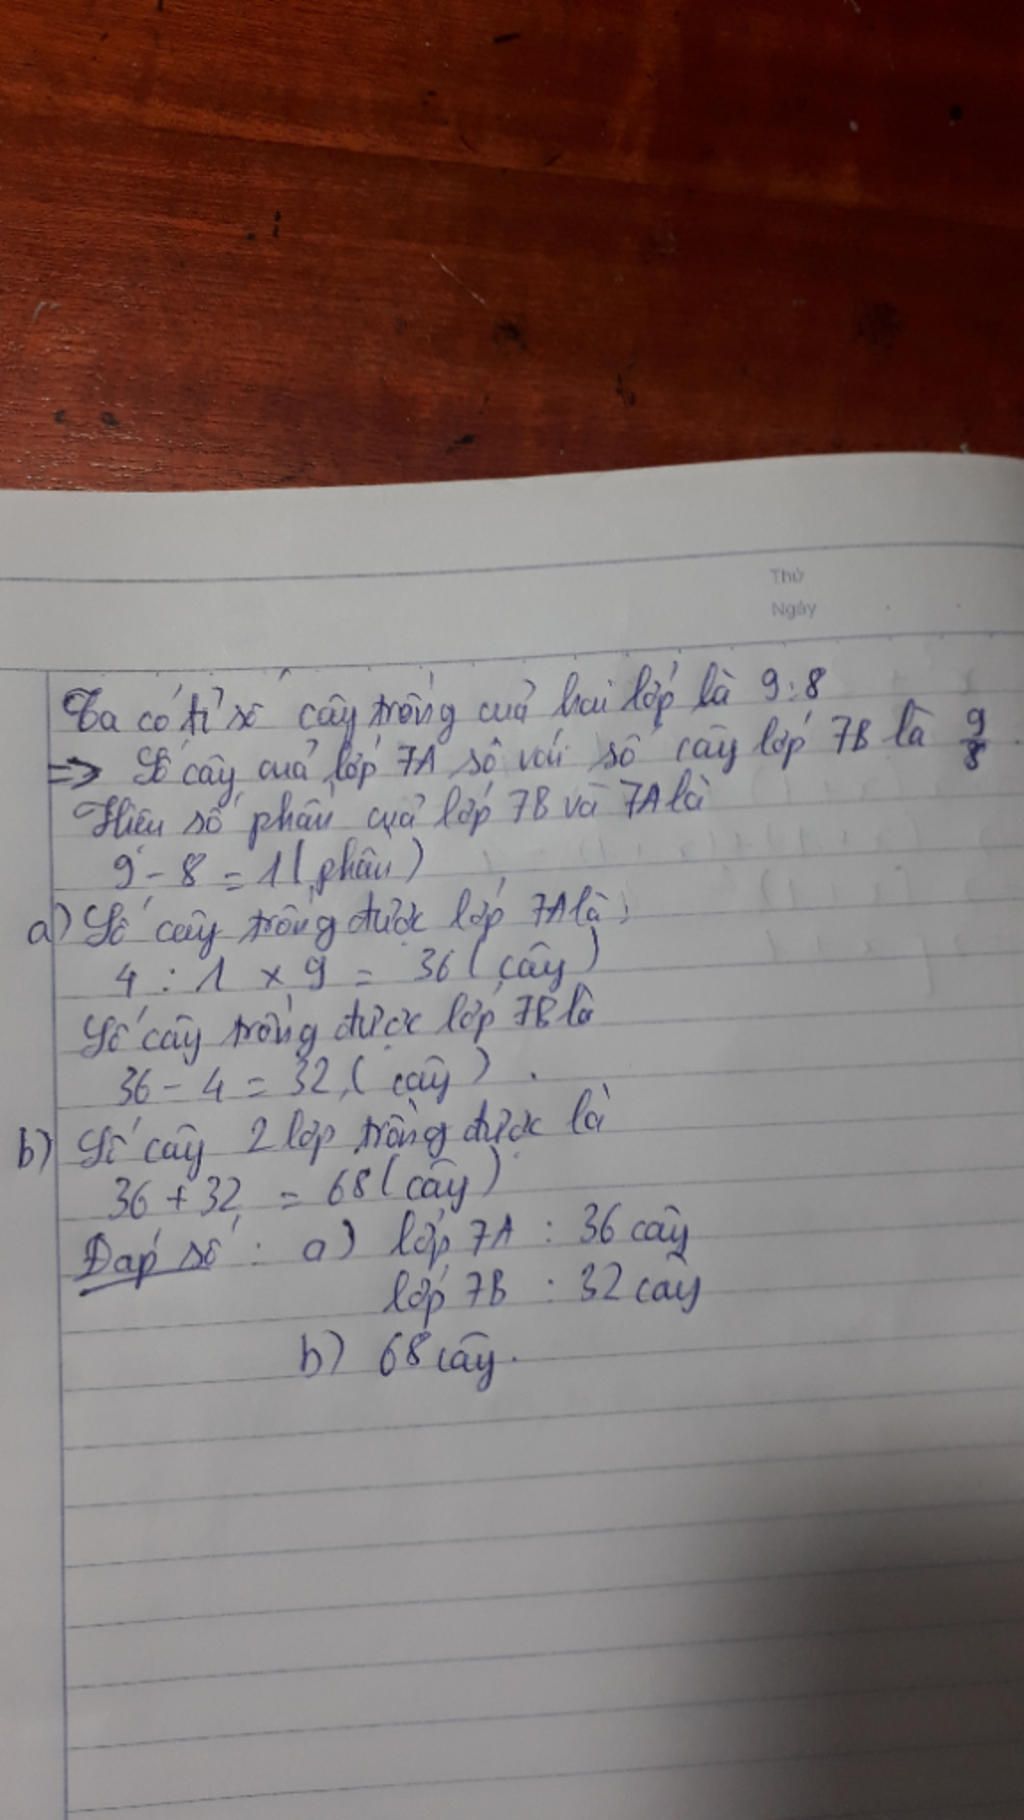 Thứ
Ngày
Ta có tỉ số cây trồng của hai lớp là 9:8
=> Số cây của lớp 7A số với số cây lớp 7B là 9/8.
Hiệu số phần của lớp 7B và 7A là
9 - 8 = 1 (phần)
a) Số cây trồng được lớp 7A là:
4 : 1 x 9 = 36 (cây)
Số cây trồng được lớp 7B là
36 - 4 = 32 (cây).
b) Số cây 2 lớp trồng được là
36 + 32 = 68 (cây)
Đáp số: a) lớp 7A : 36 cây
lớp 7B : 32 cây
b) 68 cây.